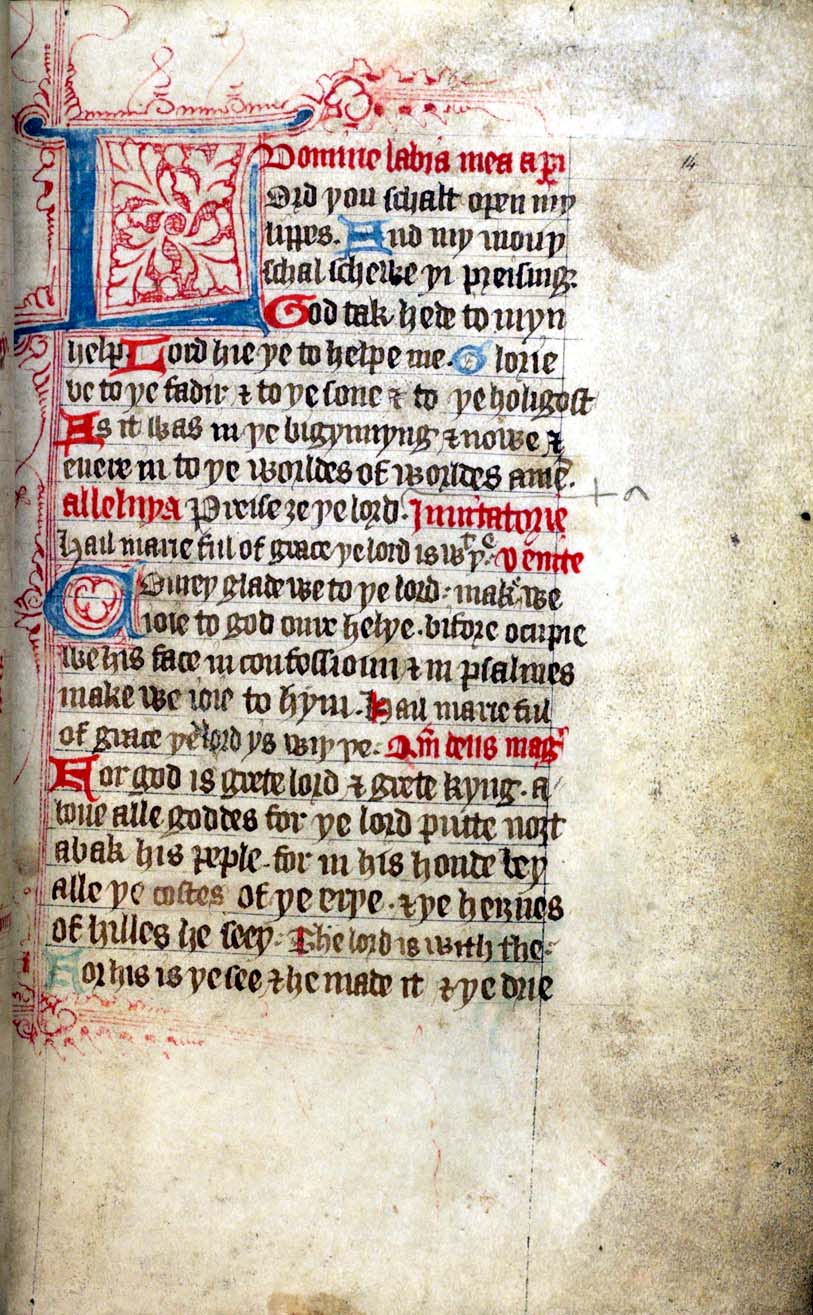 Domine labia mea api
14
Lord you schalt open my
lippes. And my mouy
schal schewe yi preising.
God tak hede to myn
help Lord hie ye to helpe me. Glorie
be to ye fadir & to ye sone & to ye holigost
As it was in ye bigynnyng & nowe &
euere in to ye worldes of worldes amē.
alleluya Preise ze ye lord. Inuitatorie
Hail marie ful of grace ye lord is wt ye. Venite
Comey glade we to ye lord: make we
ioie to god oure helye. bifore ocupie
we his face in confessioun & in psalmes
make we ioie to hym. Hail marie ful
of grace ye lord ys wiy ye. Qm̄ deus mag
For god is grete lord & grete kyng. a
boue alle goddes for ye lord putte nozt
abak his peple. for in his honde bey
alle ye costes of ye erye. & ye heznes
of hilles he seey. The lord is with the.
For his is ye see & he made it & ye drie